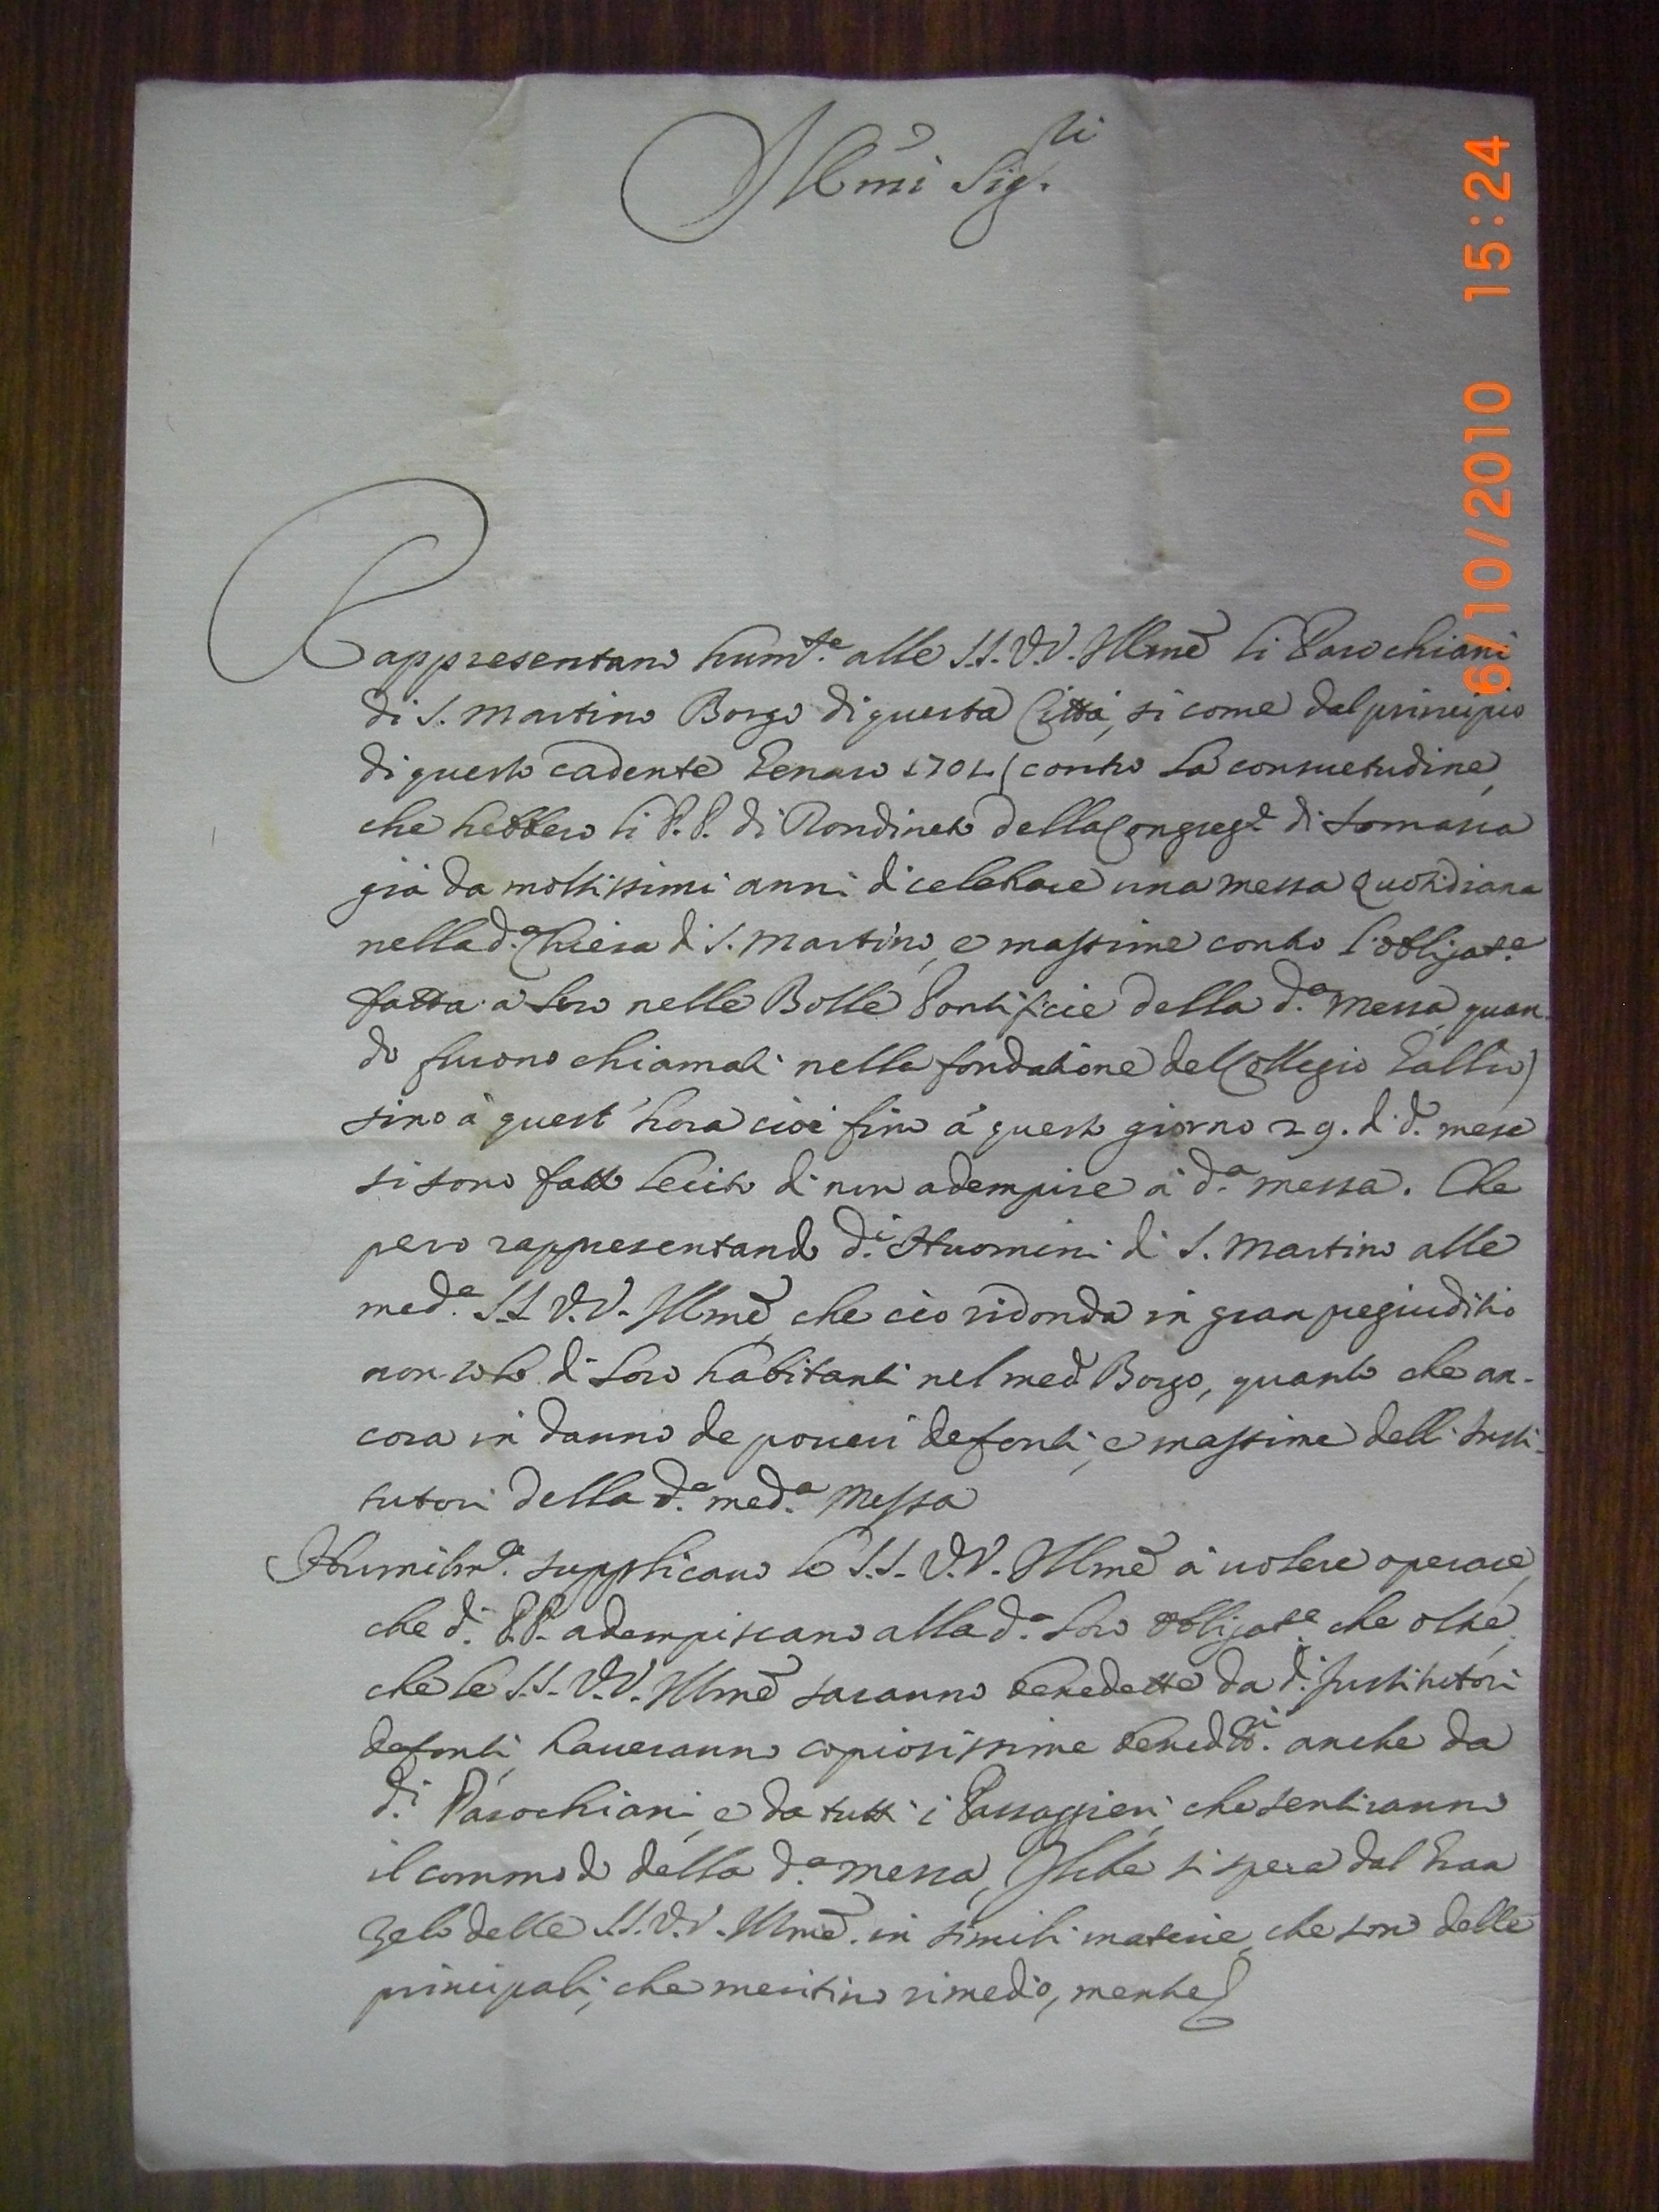 Ill.mi Sig.ri
Rappresentano hum.te alle S.S. V.V. Ill.me li Parochiani
di S. Martino Borgo di questa Città, si come dal principio
di questo cadente Genaro 1701 (contro la consuetudine,
che hebbero li P.P. di Rondineto della Congreg.e di Somasca
già da moltissimi anni di celebrare una messa quotidiana
nella d.a Chiesa di S. Martino, e massime contro l'obligat.e
fatta à loro nelle Bolle Pontificie della d.a messa quan-
do furono chiamati nella fondatione del Collegio Gallio)
sino à quest'hora cioè fino à questo giorno 29. di d.o mese
si sono fatto lecito di non adempire à d.a messa. Che
pero rappresentando d.i Huomini di S. Martino alle
med.e S.S. V.V. Ill.me che ciò ridonda in gran pregiuditio
non solo di loro habitanti nel med.o Borgo, quanto che an-
cora in danno de poueri defonti, e massime delli Insti-
tutori della d.a med.a Messa
Humilm.te supplicano le S.S. V.V. Ill.me à uolere operare,
che d.i P.P. adempiscano alla d.a loro obligat.e che oltre,
che le S.S. V.V. Ill.me saranno benedette da d.i Institutori
defonti, haueranno copiosissime bened.ni anche da
d.i Parochiani, e da tutti i Passaggieri, che sentiranno
il commodo della d.a messa, Ilche si spera dal Gran
zelo delle S.S. V.V. Ill.me in simili materie, che sono delle
principali, che meritino rimedio, mentre
6/10/2010 15:24